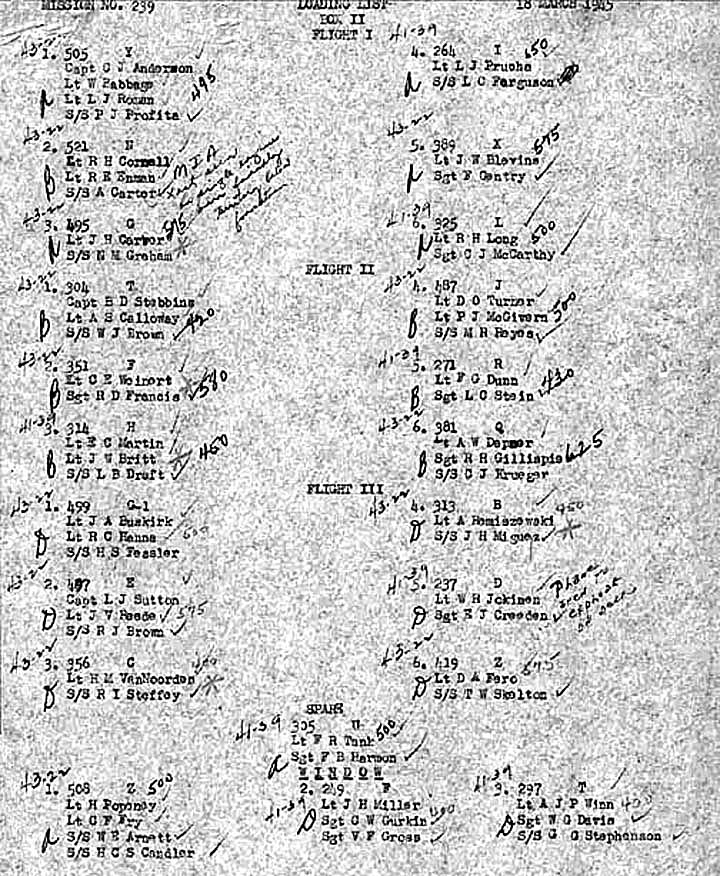 MISSION NO. 239 LOADING LIST 18 MARCH 1945
BOX II
FLIGHT I 41-39
43-22
1. 505 Y
Capt C J Anderson
Lt W Babbage
Lt L J Roman 495
S/S P J Profita
4. 264 I 650
Lt L J Pruche
S/S L C Ferguson
43-22
2. 521 N
Lt R H Cornell
Lt R E Enman MIA
S/S A Carter
43-22
5. 389 X 575
Lt J W Blevins
Sgt F Gentry
43-22
3. 495 G
Lt J H Carter
S/S N M Graham
41-39
6. 325 L
Lt R H Long 500
Sgt C J McCarthy
FLIGHT II
43-22
1. 304 T
Capt B D Stebbins
Lt A S Calloway
S/S W J Brown 420
43-22
4. 487 J
Lt D O Turner
Lt P J McGivern 500
S/S M R Reyes
43-22
2. 351 F
Lt C E Weinert
Sgt R D Francis 580
41-39
5. 271 R
Lt F G Dunn
Sgt L C Stein 430
41-39
3. 314 H
Lt E C Martin
Lt J W Britt 460
S/S L B Draft
43-22
6. 381 Q
Lt A W Depner
Sgt R H Gillispie 625
S/S C J Krueger
FLIGHT III
43-22
1. 499 G-1
Lt J A Buskirk
Lt R C Hanna 600
S/S H S Fessler
43-22
4. 313 B 450
Lt A Romiszowski
S/S J H Miguez
43-22
2. 497 E
Capt L J Sutton
Lt J V Reede 575
S/S R J Brown
41-39
5. 237 D
Lt W H Jokinen
Sgt E J Creeden
43-22
3. 356 C
Lt H M VanNoorden
S/S R I Steffey
43-22
6. 419 Z 575
Lt D A Fero
S/S T W Skelton
SPARE
41-39 305 U
Lt F R Tank 500
Sgt F B Harmon
WINDOW
43-22
1. 508 Z 500
Lt H Popeney
Lt C F Fry
S/S W E Arnett
S/S H C S Candler
2. 249 F
41-39 Lt J H Miller
Sgt C W Gurkin
Sgt V F Gross
41-39
3. 297 T
Lt A J P Winn 400
Sgt W G Davis
S/S G G Stephenson